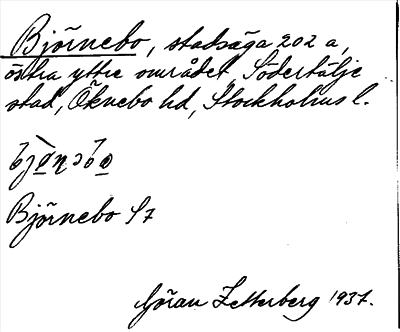 Björnebo, stadsäga 202 a,
östra yttre området Södertälje
stad, Öknebo hd, Stockholms l.
Björnebo S7
Göran Zetterberg 1937.